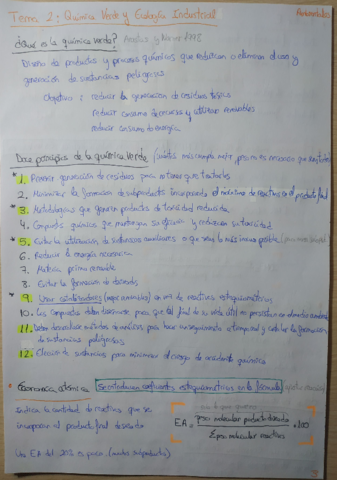 Tema 2: Química Verde y Ecología Industrial
¿Qué es la química verde? Anastas y Warner 1998
Diseño de productos y procesos químicos que reduzcan o eliminen el uso y
generación de sustancias peligrosas
Objetivo: reducir la generación de residuos tóxicos
reducir consumo de recursos y utilizar renovables
reducir consumo de energía
Doce principios de la química verde
* 1. Prevenir generación de residuos para no tener que tratarlos
2. Maximizar la formación de subproductos incorporando el máximo de reactivos en el producto final
* 3. Metodologías que generen productos de toxicidad reducida
4. Compuestos químicos que mantengan su eficacia y reduzcan su toxicidad
* 5. Evitar la utilización de sustancias auxiliares o que sean lo más inocuas posible
6. Reducir la energía necesaria
7. Materia prima renovable
8. Evitar la formación de derivados
* 9. Usar catalizadores en vez de reactivos estequiométricos
10. Los compuestos deben diseñarse para que al final de su vida útil no persistan en el medio ambiente
11. Deben desarrollarse métodos de análisis para hacer un seguimiento a tiempo real y evitar la formación
de sustancias peligrosas
12. Elección de sustancias para minimizar el riesgo de accidente químico
* Economía atómica Se introducen coeficientes estequiométricos en la fórmula
Indica la cantidad de reactivos que se
incorporan al producto final deseado
EA = peso molecular producto deseado / Σ peso molecular reactivos · 100
Una EA del 20% es poco (muchos subproductos)